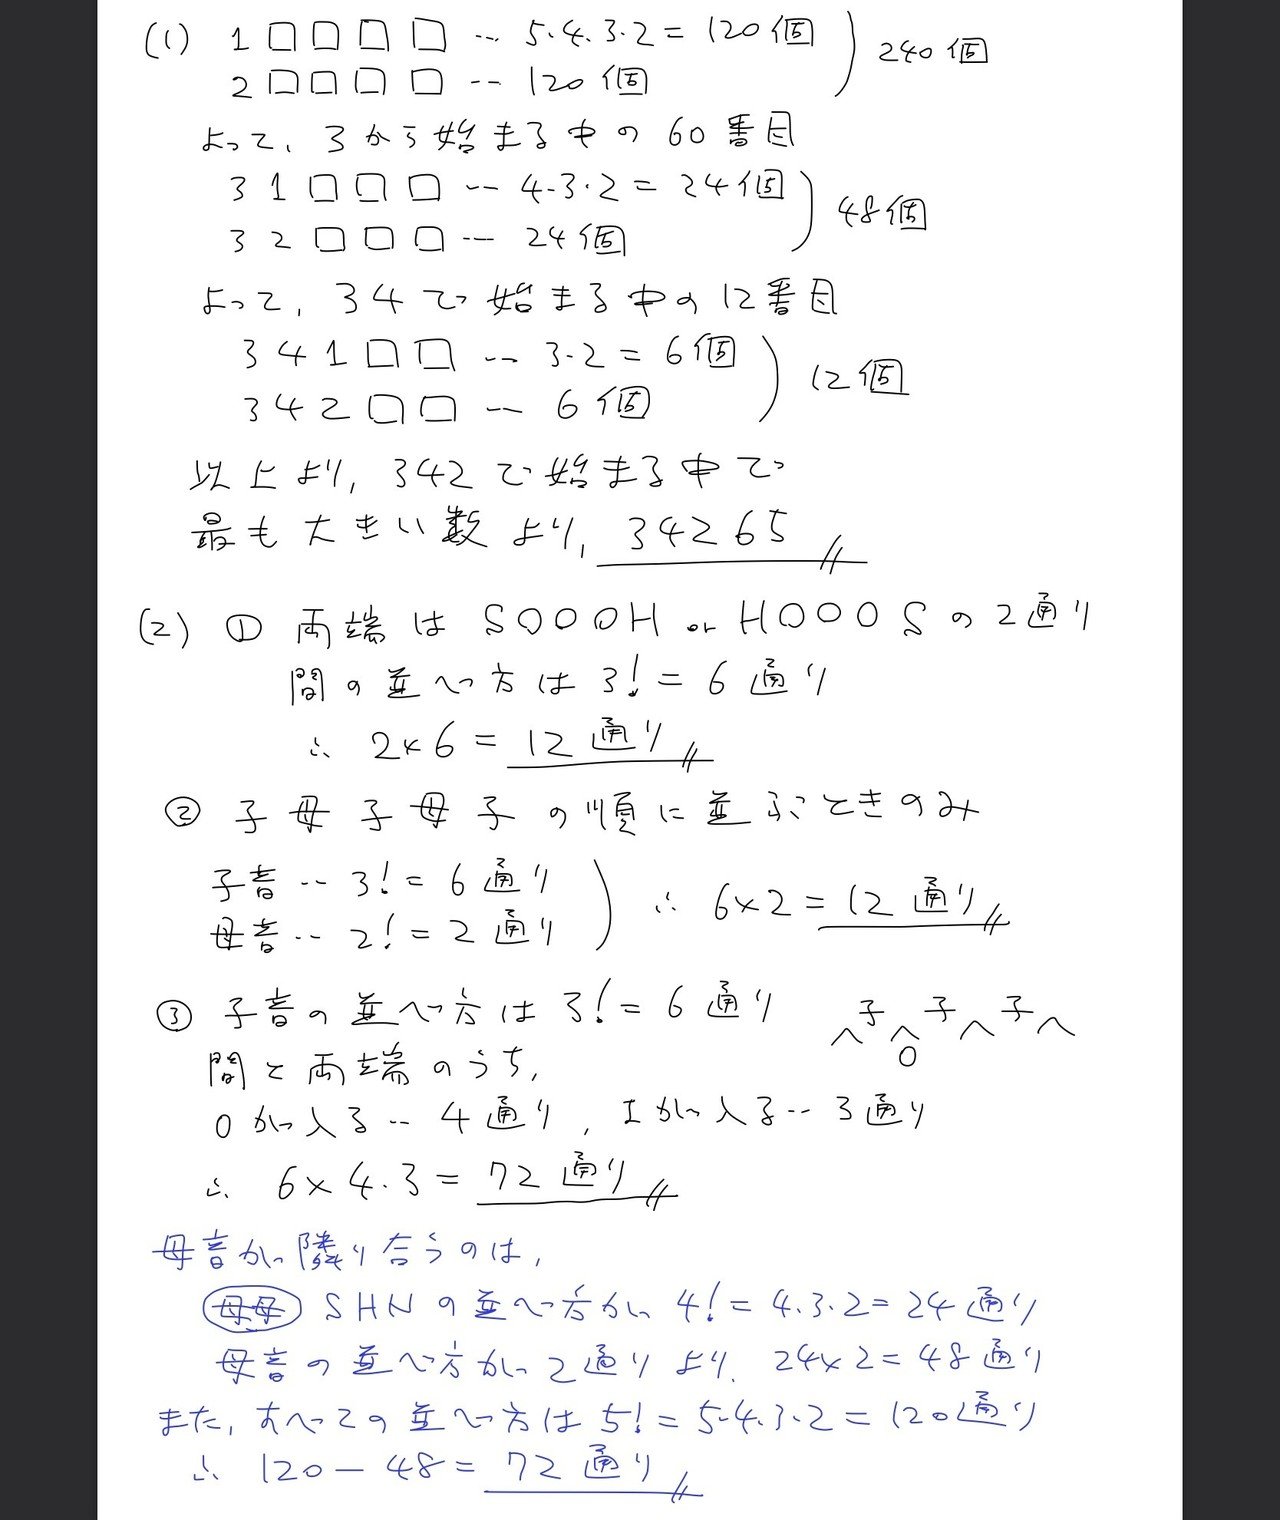 (1) 1□□□□ … 5・4・3・2 = 120個 ) 240個
2□□□□ … 120個
よって、3から始まる中の60番目
31□□□ … 4・3・2 = 24個 ) 48個
32□□□ … 24個
よって、34で始まる中の12番目
341□□ … 3・2 = 6個 ) 12個
342□□ … 6個
以上より、342で始まる中で
最も大きい数より、34265
(2) ① 両端は SOOOH or HOOOS の2通り
間の並べ方は 3! = 6通り
∴ 2×6 = 12通り
② 子母子母子の順に並ぶときのみ
子音‥3! = 6通り ) ∴ 6×2 = 12通り
母音‥2! = 2通り
③ 子音の並べ方は 3! = 6通り ∧子∧子∧子∧
O
間と両端のうち、
Oが入る‥4通り、Iが入る‥3通り
∴ 6×4・3 = 72通り
母音が隣り合うのは、
母母 SHNの並べ方が 4! = 4・3・2 = 24通り
母音の並べ方が2通りより、24×2 = 48通り
また、すべての並べ方は 5! = 5・4・3・2 = 120通り
∴ 120 − 48 = 72通り